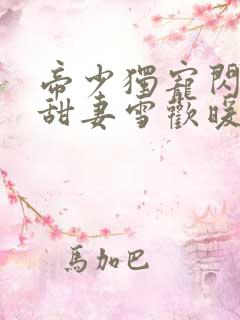 帝少獨寵閃
甜妻雪歡暖
馬加巴